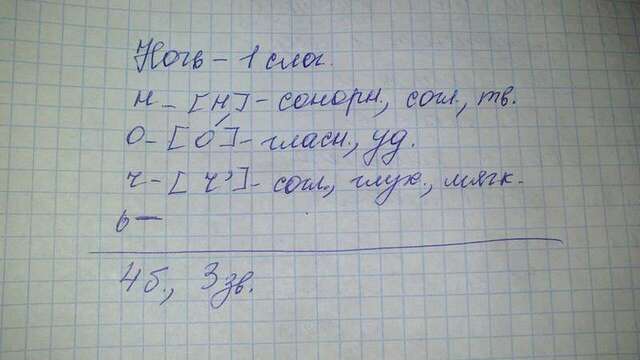 Ночь – 1 слог.
н – [н] – сонорн., согл., тв.
о – [о́] – гласн., уд.
ч – [ч'] – согл., глух., мягк.
ь –
4 б., 3 зв.